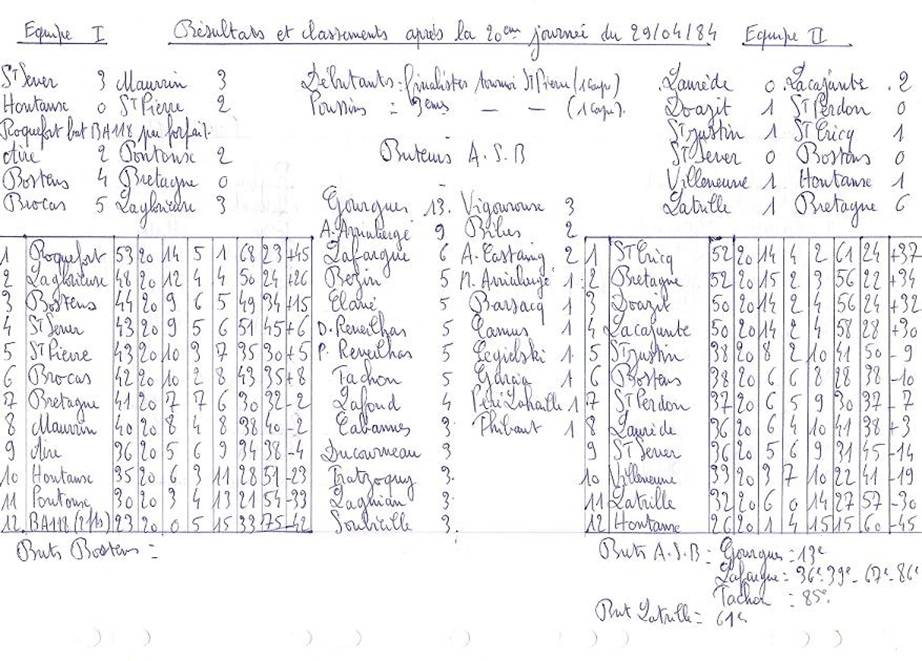 Equipe I Résultats et classements après la 20em journée du 29/04/84 Equipe II
St Sever 3 Mauvrin 3
Hontanx 0 St Pierre 2
Roquefort bat BA118 par forfait.
Aire 2 Pontonx 2
Bostens 4 Bretagne 0
Brocas 5 Laglorieuse 3
Débutants = finalistes tournoi St Pierre (1 coupe)
Poussins = 3ems — — (1 coupe).
Buteurs A.S.B
Laurède 0 Lacajunte 2
Doazit 1 St Perdon 0
St Justin 1 St Cricq 1
St Sever 0 Bostens 0
Villeneuve 1 Hontanx 1
Latrille 1 Bretagne 6
Gourgues 13. Vigouroux 3
Lafargue 6 A. Castaing 2
Bezin 5
5 Barsacq 1
D. Reveilhas 5 Camus 1
P. Reveilhas 5 1
Tachon 5 Garcia 1
Lafond 4 1
Cabannes 3 Phibaut 1
Ducourneau 3
Tratzoguy 3.
Lagnian 3.
3.
1 Roquefort 53 20 14 5 1 68 23 +45
2 Laglorieuse 48 20 12 4 4 50 24 +26
3 Bostens 44 20 9 6 5 49 34 +15
4 St Sever 43 20 9 5 6 51 45 +6
5 St Pierre 43 20 10 3 7 35 30 +5
6 Brocas 42 20 10 2 8 43 35 +8
7 Bretagne 41 20 7 7 6 30 32 -2
8 Mauvrin 40 20 8 4 8 38 40 -2
9 Aire 36 20 5 6 9 34 38 -4
10 Hontanx 35 20 6 3 11 28 51 -23
11 Pontonx 30 20 3 4 13 21 54 -33
12. BA118 23 20 0 5 15 33 75 -42
1 St Cricq 52 20 14 4 2 61 24 +37
2 Bretagne 52 20 15 2 3 56 22 +34
3 Doazit 50 20 14 2 4 56 24 +32
4 Lacajunte 50 20 14 2 4 58 28 +30
5 St Justin 38 20 8 2 10 41 50 -9
6 Bostens 38 20 6 6 8 28 38 -10
7 St Perdon 37 20 6 5 9 30 37 -7
8 Laurède 36 20 6 4 10 41 38 +3
9 St Sever 36 20 5 6 9 31 45 -14
10 Villeneuve 33 20 3 7 10 22 41 -19
11 Latrille 32 20 6 0 14 27 57 -30
12 Hontanx 26 20 1 4 15 15 60 -45
Buts Bostens =
Buts A.S.B = Gourgues = 13e
Lafargue = 36e-39e-67e-86e
Tachon = 85e
But Latrille = 61e